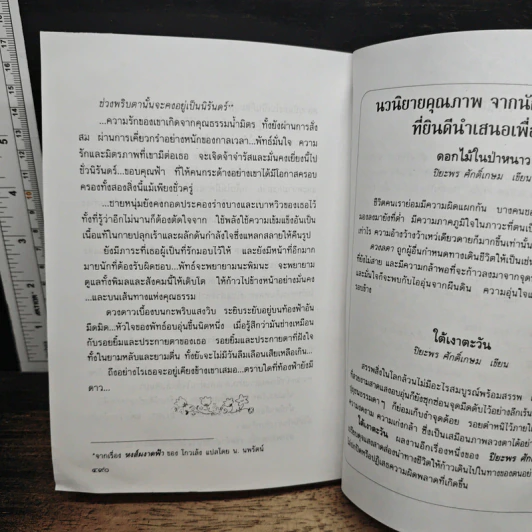 ช่วงพริบตานั้นจะคงอยู่เป็นนิรันดร์"*
...ความรักของเขาเกิดจากคุณธรรมน้ำมิตร ทั้งยังผ่านการสั่ง
สม ผ่านการเคี่ยวกรำอย่างหนักของกาลเวลา...พัทธ์มั่นใจ ความ
รักและมิตรภาพที่เขามีต่อเธอ จะเจิดจ้าจำรัสและมั่นคงเยี่ยงนี้ไป
ชั่วนิรันดร์...ขอบคุณฟ้า ที่ให้คนกระด้างอย่างเขาได้มีโอกาสครอบ
ครองทั้งสองสิ่งนี้แม้เพียงชั่วครู่
...ชายหนุ่มยังคงกอดประคองร่างบางและเบาหวิวของเธอไว้
ทั้งที่รู้ว่าอีกไม่นานก็ต้องตัดใจจาก ใช้พลังใช้ความเข้มแข็งอันเป็น
เนื้อแท้ในกายปลุกเร้าและผลักดันกำลังใจซึ่งแหลกสลายให้คืนรูป
ยังมีภาระที่เธอผู้เป็นที่รักมอบไว้ให้ และยังมีหน้าที่อีกมาก
มายนักที่ต้องรับผิดชอบ...พัทธ์จะพยายามนะพิมนะ จะพยายาม
ดูแลทั้งพิมลและสังคมนี้ให้เติบโต ให้ก้าวไปข้างหน้าอย่างมั่นคง
...และบนเส้นทางแห่งคุณธรรม
ดวงดาวเบื้องบนกะพริบแสงวิบ ระยิบระยับอยู่บนท้องฟ้าอัน
มืดมิด...หัวใจของพัทธ์อบอุ่นขึ้นนิดหนึ่ง เมื่อรู้สึกว่ามันช่างเหมือน
กับรอยยิ้มและประกายตาของเธอ รอยยิ้มและประกายตาที่ฝังใจ
ทั้งในยามหลับและยามตื่น ทั้งยังจะไม่มีวันลืมเลือนเสียเหลือเกิน...
ถึงอย่างไรเธอจะอยู่เคียงข้างเขาเสมอ...ตราบใดที่ท้องฟ้ายังมี
ดาว...
*จากเรื่อง หงส์ผงาดฟ้า ของ โกวเล้ง แปลโดย น. นพรัตน์
นวนิยายคุณภาพ จากนั
ที่ยินดีนำเสนอเพื่
ดอกไม้ในป่าหนาว
ปิยะพร ศักดิ์เกษม เขียน
ชีวิตคนเราย่อมมีความผิดแผกกัน บางคนขอ
มองลงมายังที่ต่ำ มีความภาคภูมิใจในภาวะที่ตนเป็น
เท่าไร ความอ้างว้างว้าเหว่เดียวดายก็มากขึ้นเท่านั้น
ดวงลดา ถูกผู้อื่นกำหนดทางเดินชีวิตให้เป็นเช่น
ที่ยังไม่สาย และมีความกล้าพอที่จะก้าวลงมาจากจุด
และมั่นใจก็จะพบกับไออุ่นจากผืนดิน ความอุ่นใจ
รอบข้าง
ใต้เงาตะวัน
ปิยะพร ศักดิ์เกษม เขียน
สรรพสิ่งในโลกล้วนไม่มีอะไรสมบูรณ์พร้อมสรรพ
ใต้เงาตะวัน ผลงานอีกเรื่องหนึ่งของ ปิยะพร ศัก